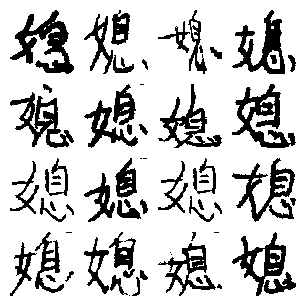 媳媳媳媳
媳媳媳媳
媳媳媳媳
媳媳媳媳